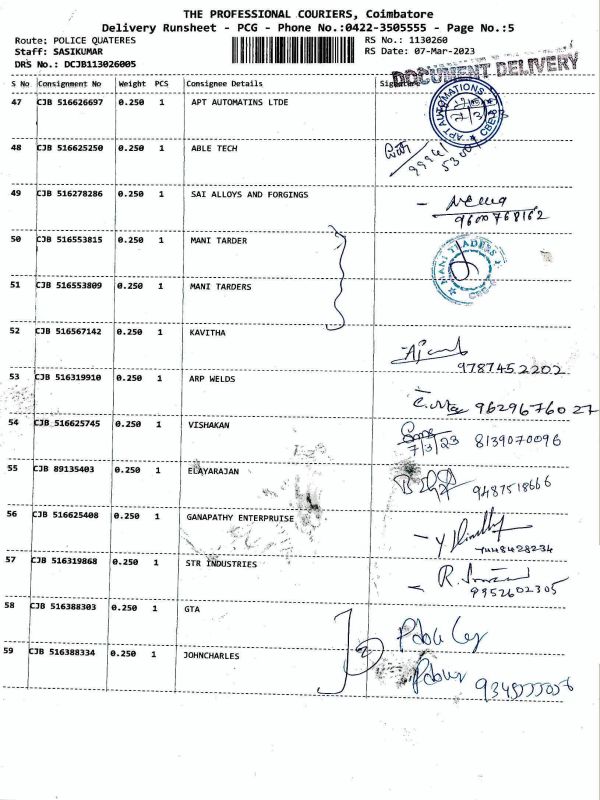 THE PROFESSIONAL COURIERS, Coimbatore
Delivery Runsheet - PCG - Phone No.:0422-3505555 - Page No.:5
Route: POLICE QUATERES RS No.: 1130260
Staff: SASIKUMAR RS Date: 07-Mar-2023
DRS No.: DCJB113026005
DOCUMENT DELIVERY
S No Consignment No Weight PCS Consignee Details Signature
47 CJB 516626697 0.250 1 APT AUTOMATINS LTDE
APT AUTOMATIONS CBE
7/3
48 CJB 516625250 0.250 1 ABLE TECH
49 CJB 516278286 0.250 1 SAI ALLOYS AND FORGINGS
9600768162
50 CJB 516553815 0.250 1 MANI TARDER
MANI TRADERS
51 CJB 516553809 0.250 1 MANI TARDERS
52 CJB 516567142 0.250 1 KAVITHA
9787452202
53 CJB 516319910 0.250 1 ARP WELDS
9629676027
54 CJB 516625745 0.250 1 VISHAKAN
7/3/23 8139070096
55 CJB 89135403 0.250 1 ELAYARAJAN
9487518666
56 CJB 516625408 0.250 1 GANAPATHY ENTERPRUISE
7448428234
57 CJB 516319868 0.250 1 STR INDUSTRIES
9952602305
58 CJB 516388303 0.250 1 GTA
59 CJB 516388334 0.250 1 JOHNCHARLES